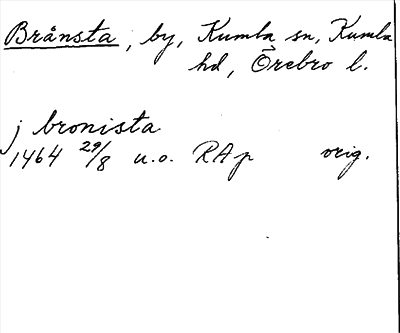 Brånsta, by, Kumla sn, Kumla
hd, Örebro l.
j bronista
1464 29/8 u.o. RAp orig.